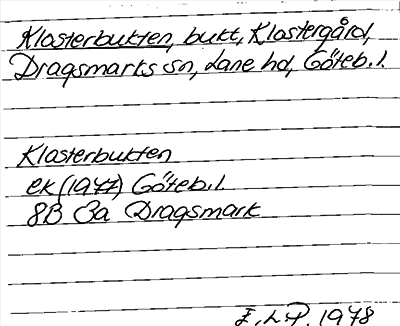 Klosterbukten, bukt, Klostergård,
Dragsmarks sn, Lane hd, Göteb. l.
Klosterbukten
ek (1977) Göteb. l.
8B 3a Dragsmark
E.L.P. 1978